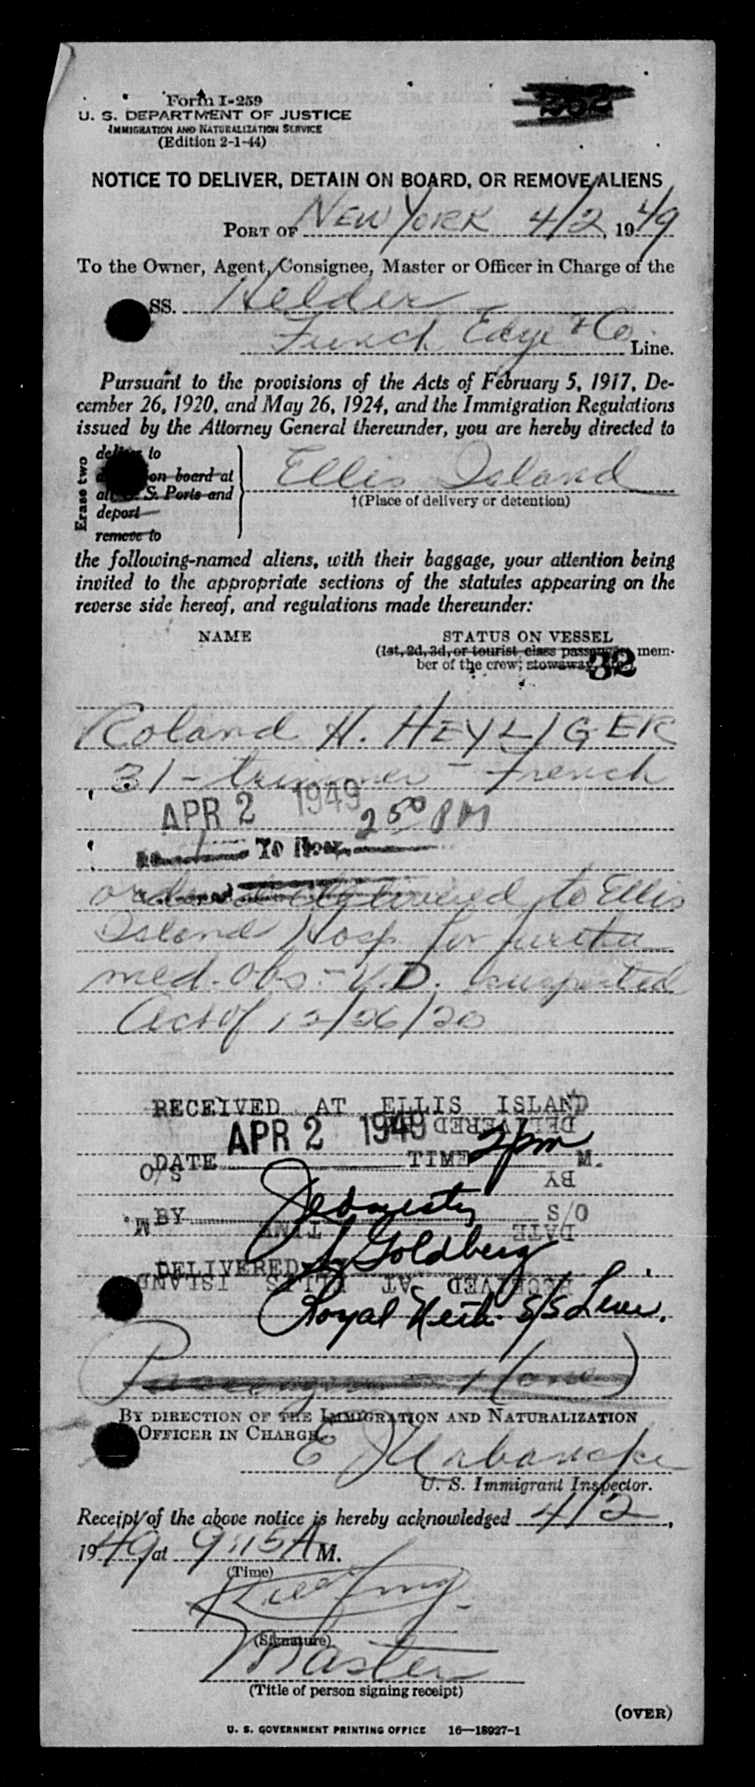 Form I-259
U. S. DEPARTMENT OF JUSTICE
IMMIGRATION AND NATURALIZATION SERVICE
(Edition 2-1-44)
NOTICE TO DELIVER, DETAIN ON BOARD, OR REMOVE ALIENS
PORT OF NEW YORK 4/2, 1949
To the Owner, Agent, Consignee, Master or Officer in Charge of the
SS. Helder
French Edye & Co. Line.
Pursuant to the provisions of the Acts of February 5, 1917, De-
cember 26, 1920, and May 26, 1924, and the Immigration Regulations
issued by the Attorney General thereunder, you are hereby directed to
Erase two
to
on board at
S. Ports and
deport
remove to
Ellis Island
†(Place of delivery or detention)
the following-named aliens, with their baggage, your attention being
invited to the appropriate sections of the statutes appearing on the
reverse side hereof, and regulations made thereunder:
NAME STATUS ON VESSEL
(1st, 2d, 3d, or tourist class passenger, mem-
ber of the crew; stowaway,
32
Roland H. HEYLIGER
31 - trimmer - French
APR 2 1949 2 50 PM
To Hosp.
to Ellis
Island Hosp for further
med. obs - V.D. suspected
Act of 12/26/20
RECEIVED AT ELLIS ISLAND
DATE APR 2 1949 TIME 2 pm M.
BY
DELIVERED by Goldberg
Royal Neth. S/S Line.
Passenger None)
BY DIRECTION OF THE IMMIGRATION AND NATURALIZATION
OFFICER IN CHARGE.
U. S. Immigrant Inspector.
Receipt of the above notice is hereby acknowledged 4/2,
1949 at 9:15 A M.
(Time)
(Signature)
Master
(Title of person signing receipt)
(OVER)
U. S. GOVERNMENT PRINTING OFFICE 16-18927-1